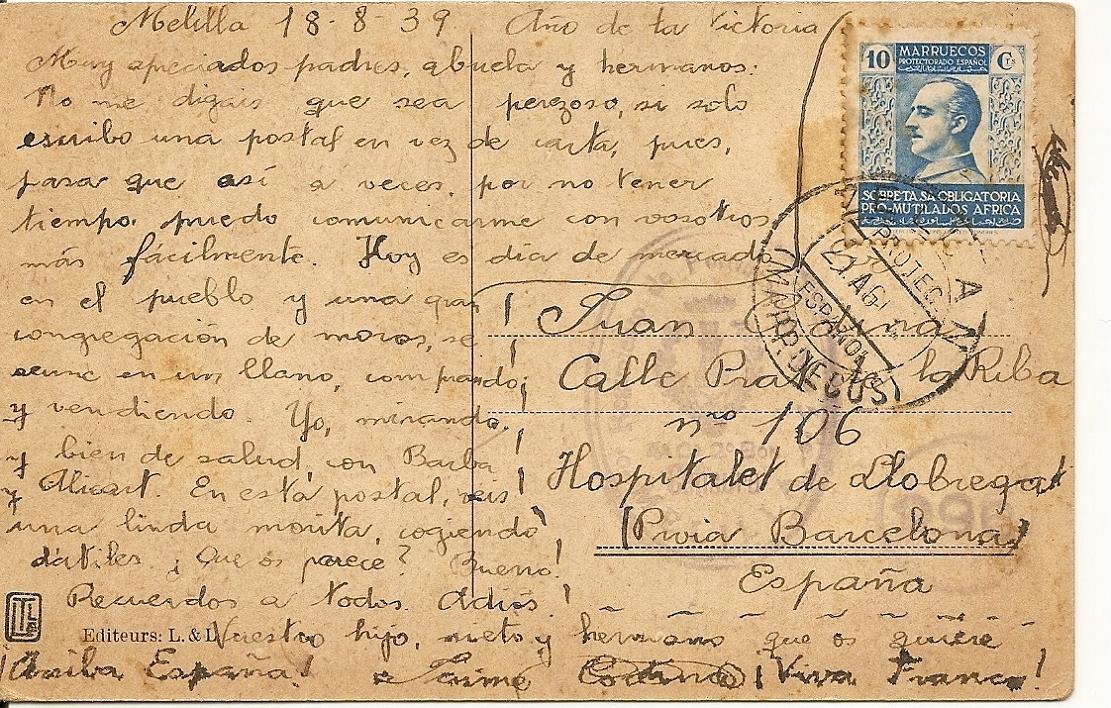 Melilla 18-8-39 Año de la Victoria
Muy apreciados padres, abuela y hermanos:
No me digais que sea perezoso, si solo
escribo una postal en vez de carta, pues,
pasa que así a veces, por no tener
tiempo, puedo comunicarme con vosotros
más fácilmente. Hoy es día de mercado
en el pueblo y una gran
congregación de moros, se
reune en un llano, comprando
y vendiendo. Yo, mirando,
y bien de salud, con Barba
y Alicart. En esta postal, veis
una linda morita, cogiendo
dátiles ¿Que os parece? Bueno!
Recuerdos a todos. Adiós!
Vuestro hijo, nieto y hermano que os quiere
¡Arriba España! Jaime Codina ¡Viva Franco!
Editeurs: L. & L.
10 MARRUECOS Cs
PROTECTORADO ESPAÑOL
SOBRETASA OBLIGATORIA
PRO-MUTILADOS AFRICA
PROTEC.
21 AG
ESPAÑOL
MARRUECOS
Juan Codina
Calle Prat de la Riba
nº 106
Hospitalet de Llobregat
(Pvia Barcelona)
España